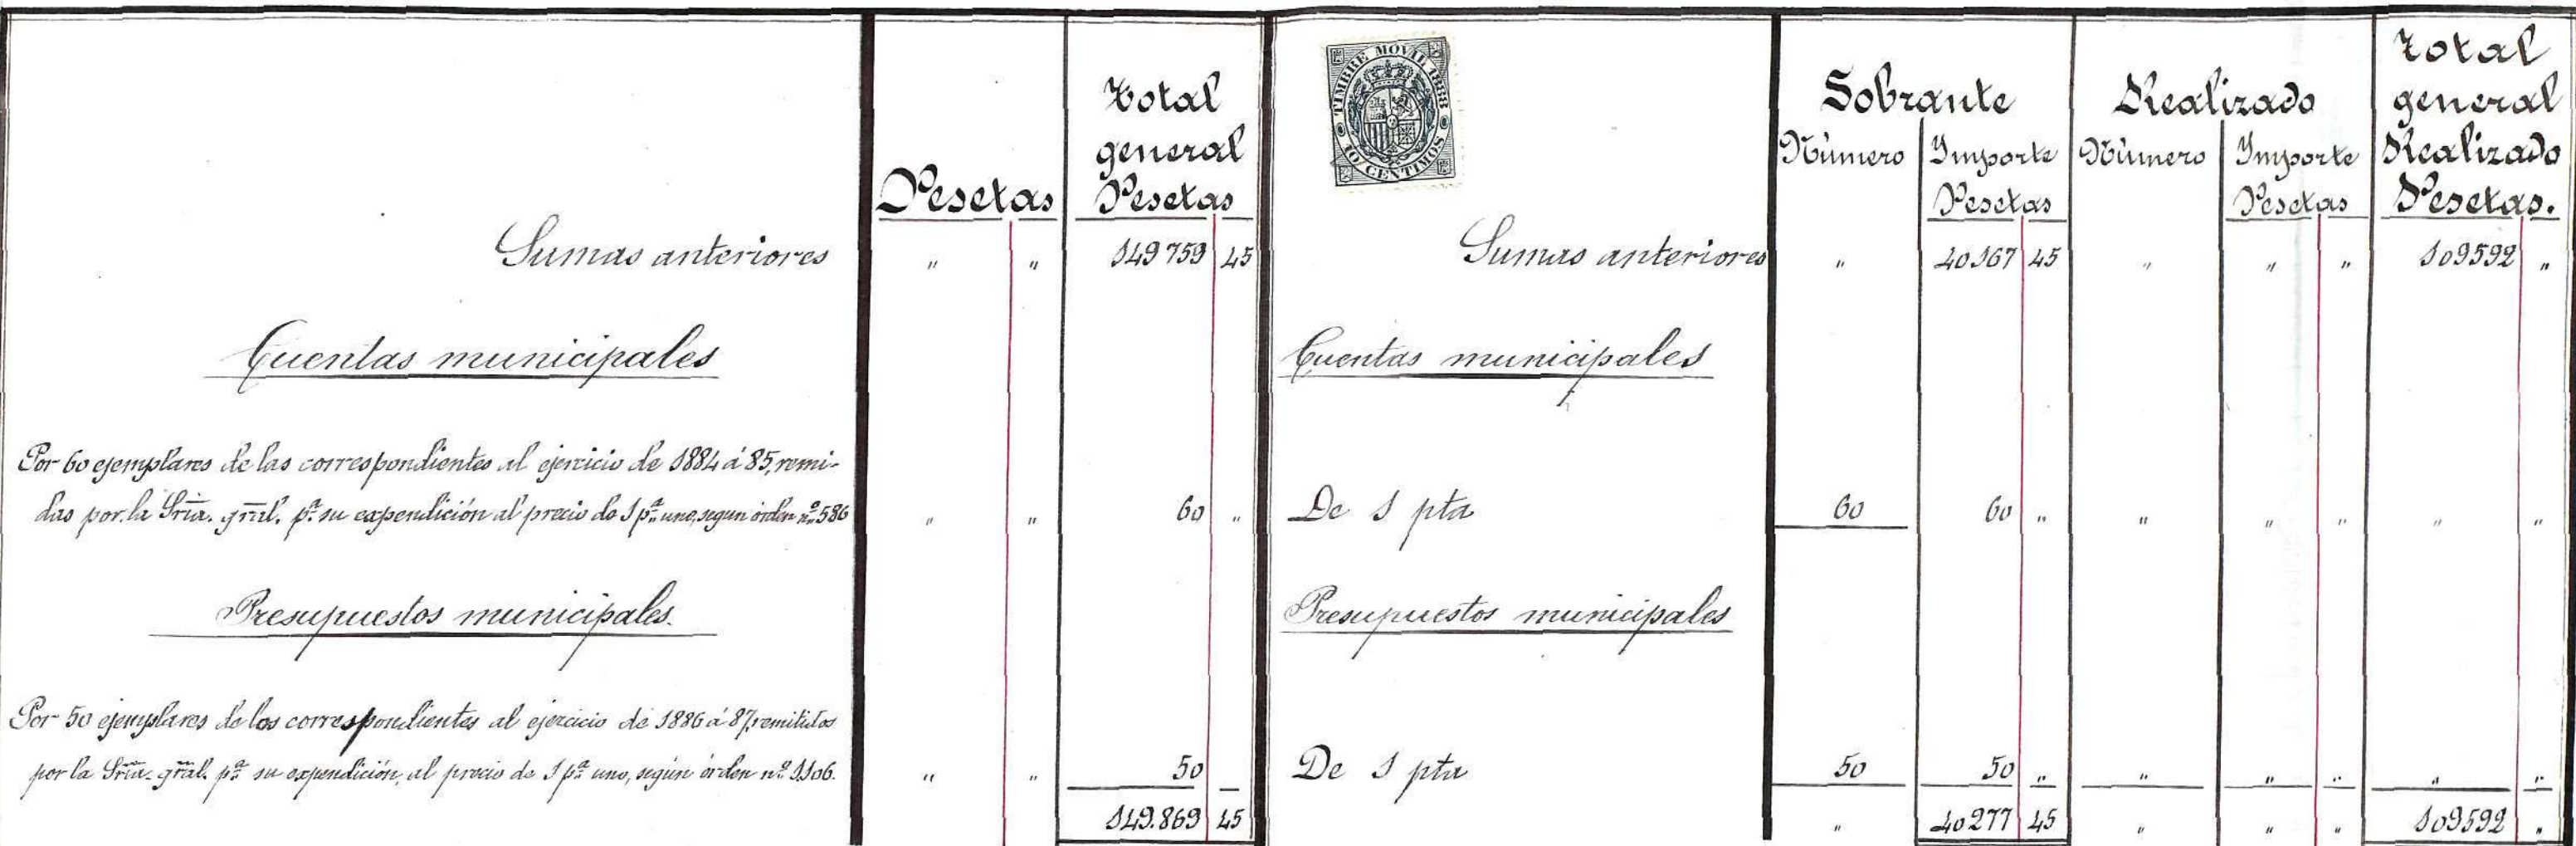 Pesetas
Total
general
Pesetas
Sumas anteriores " " 149 759 45
Cuentas municipales
Por 60 ejemplares de las correspondientes al ejercicio de 1884 á 85, remi-
das por la Sria. gral. pª su expendición al precio de 1 pª uno, segun órden nº 586 " " 60 "
Presupuestos municipales.
Por 50 ejemplares de los correspondientes al ejercicio de 1886 á 87, remitidos
por la Sria. gral. pª su expendición, al precio de 1 pª uno, según órden nº 1106. " " 50
149.869 45
TIMBRE MOVIL 1888
10 CENTIMOS
Sobrante
Número Importe
Pesetas
Realizado
Número Importe
Pesetas
Total
general
Realizado
Pesetas.
Sumas anteriores " 40167 45 " " " 109592 "
Cuentas municipales
De 1 pta 60 60 " " " " " "
Presupuestos municipales
De 1 pta 50 50 " " " " " "
" 40277 45 " " " 109592 "